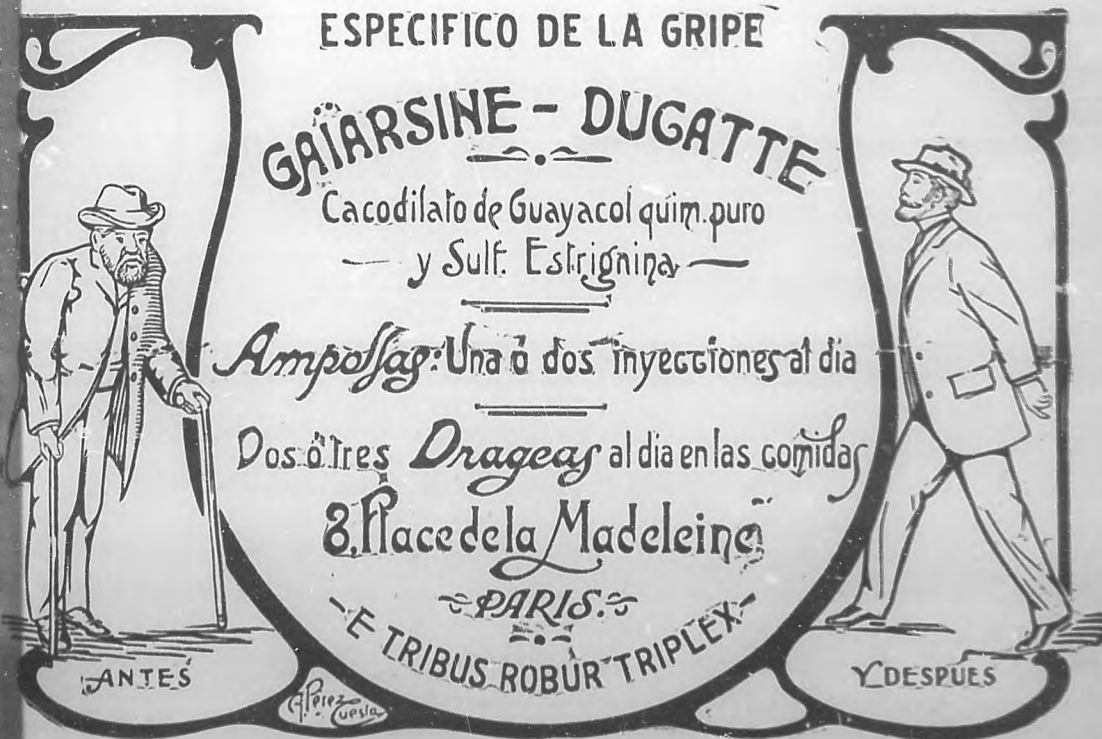 ESPECIFICO DE LA GRIPE
GAÏARSINE - DUGATTE
Cacodilato de Guayacol quim. puro
y Sulf. Estrignina
Ampollas: Una ó dos inyecciones al dia
Dos ó tres Drageas al dia en las comidas
8, Place de la Madeleine
PARIS.
E TRIBUS ROBUR TRIPLEX
ANTES
Y DESPUES
A. Pérez
Cuesta